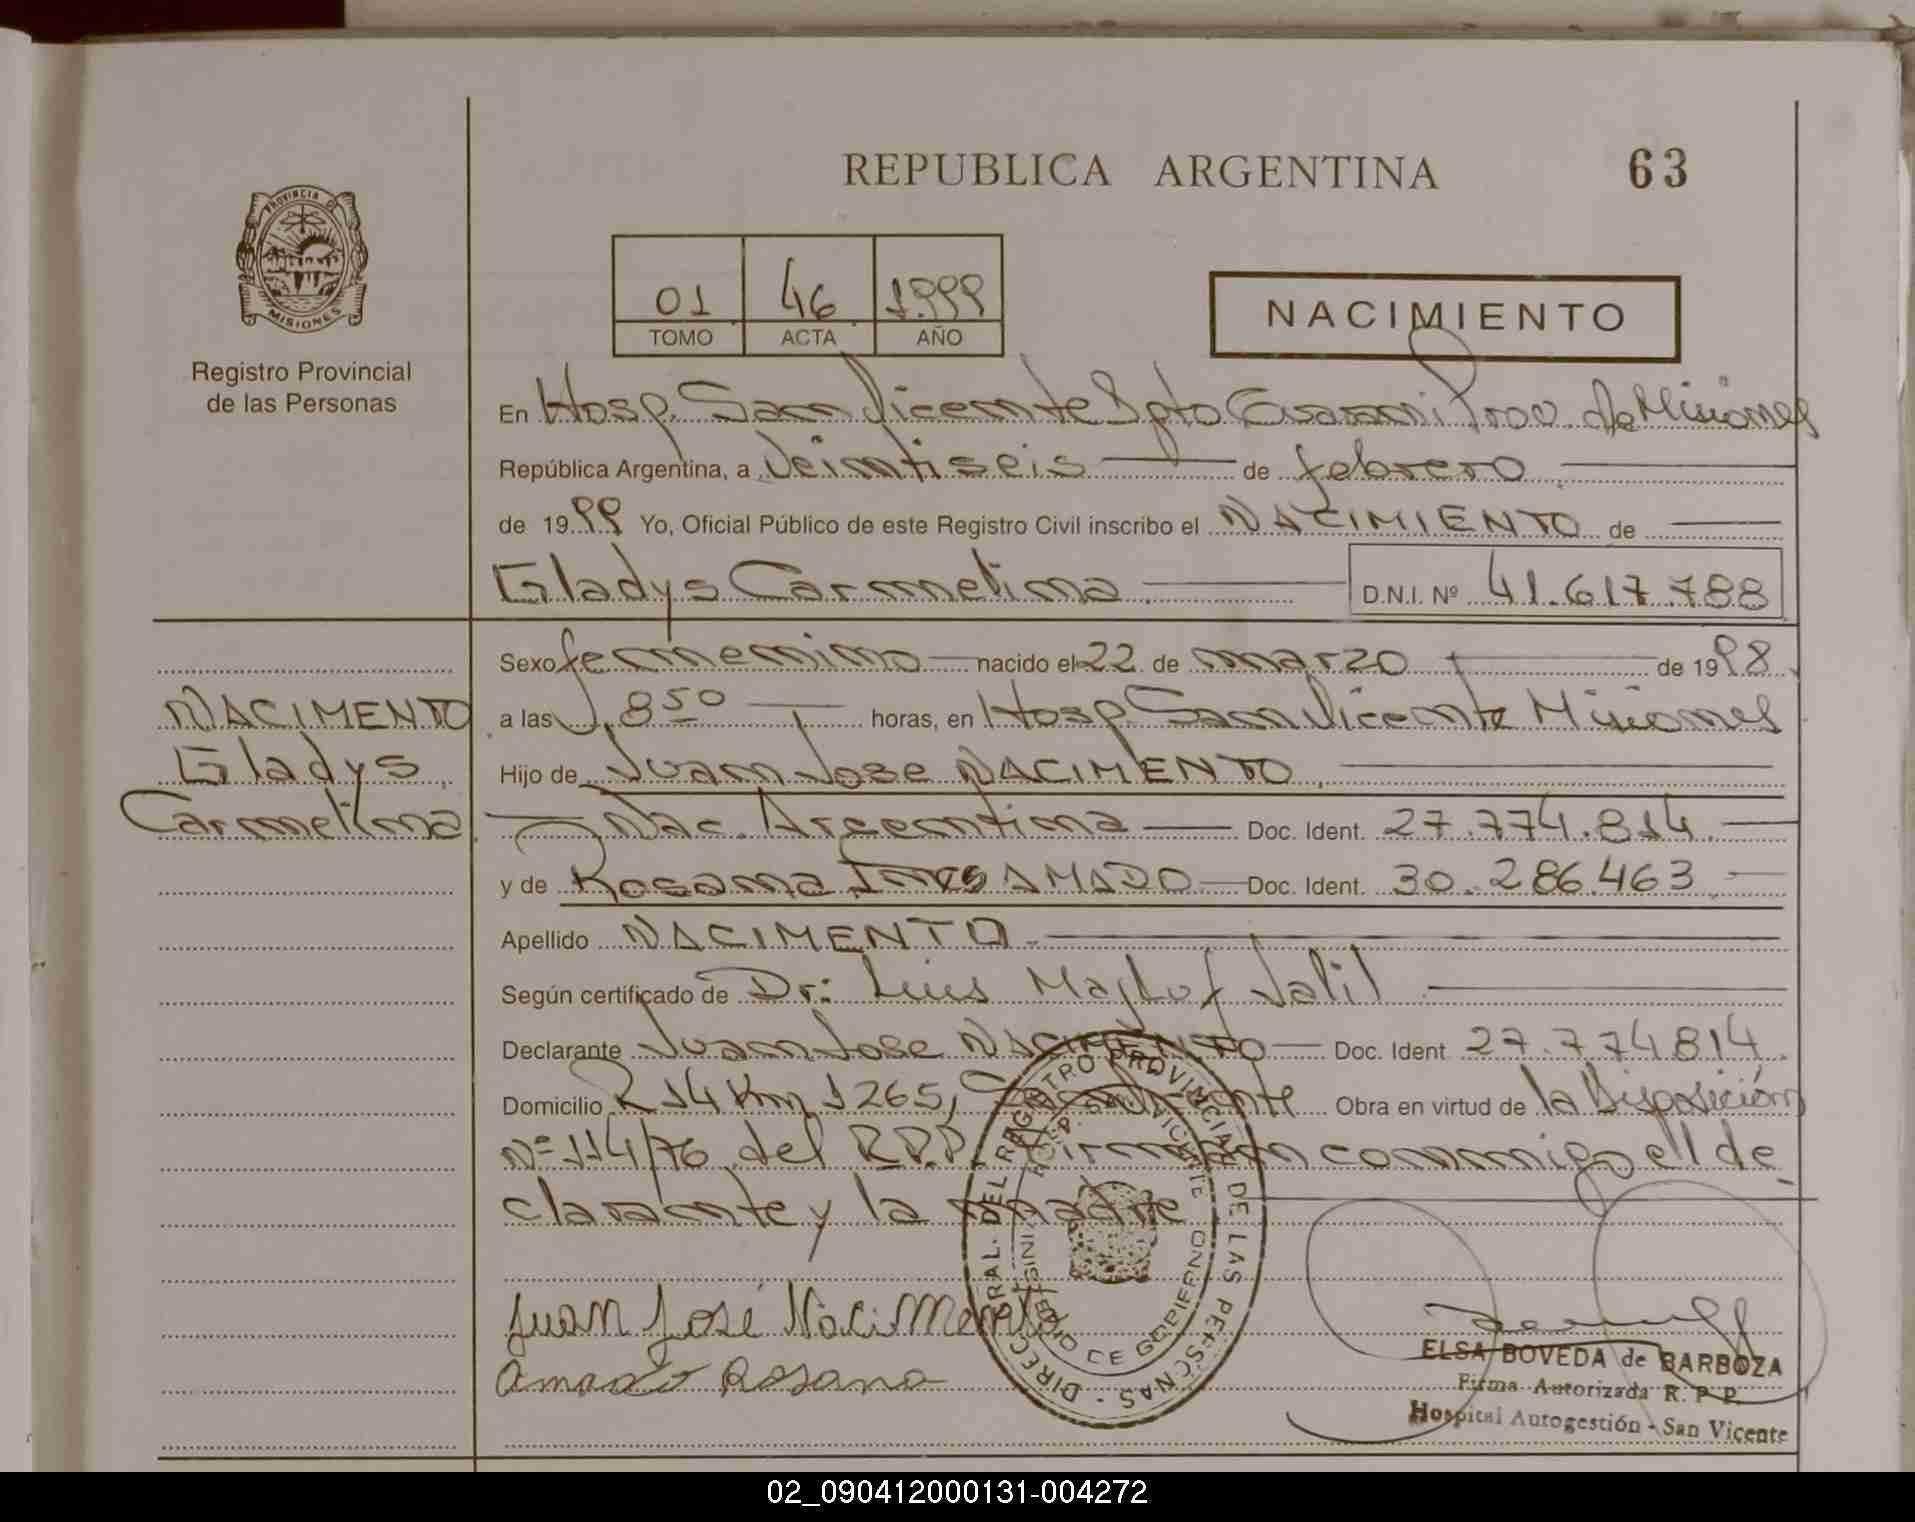 REPUBLICA ARGENTINA
63
PROVINCIA D
MISIONES
Registro Provincial
de las Personas
01 46 1999
TOMO ACTA AÑO
NACIMIENTO
En Hosp. San Vicente Dpto Guarani Prov. de Misiones
República Argentina, a Veintiseis de febrero
de 1999 Yo, Oficial Público de este Registro Civil inscribo el NACIMIENTO de
Gladys Carmelina D.N.I. Nº 41.617.788
Sexo femenino nacido el 22 de marzo de 1998
a las 8 50 horas, en Hosp. San Vicente Misiones
Hijo de Juan Jose NACIMENTO
Nac. Argentina Doc. Ident. 27.774.814
y de Rosana Ines AMADO Doc. Ident. 30.286.463
Apellido NACIMENTO
Según certificado de Dr: Luis Jalil
Declarante Juan Jose NACIMENTO Doc. Ident 27.774814
Domicilio R 14 Km 1265, San Vicente Obra en virtud de la Disposición
Nº 114/76 del R.P.P. Firman conmigo el de
clarante y la madre
NACIMENTO
Gladys
Carmelina
Juan José Nacimento
Amado Rosana
DIREC. GRAL. DEL REGISTRO PROVINCIAL DE LAS PERSONAS
HOSP. SAN VICENTE
MINISTERIO DE GOBIERNO
ELSA BOVEDA de BARBOZA
Firma Autorizada R. P. P.
Hospital Autogestión - San Vicente
02_090412000131-004272